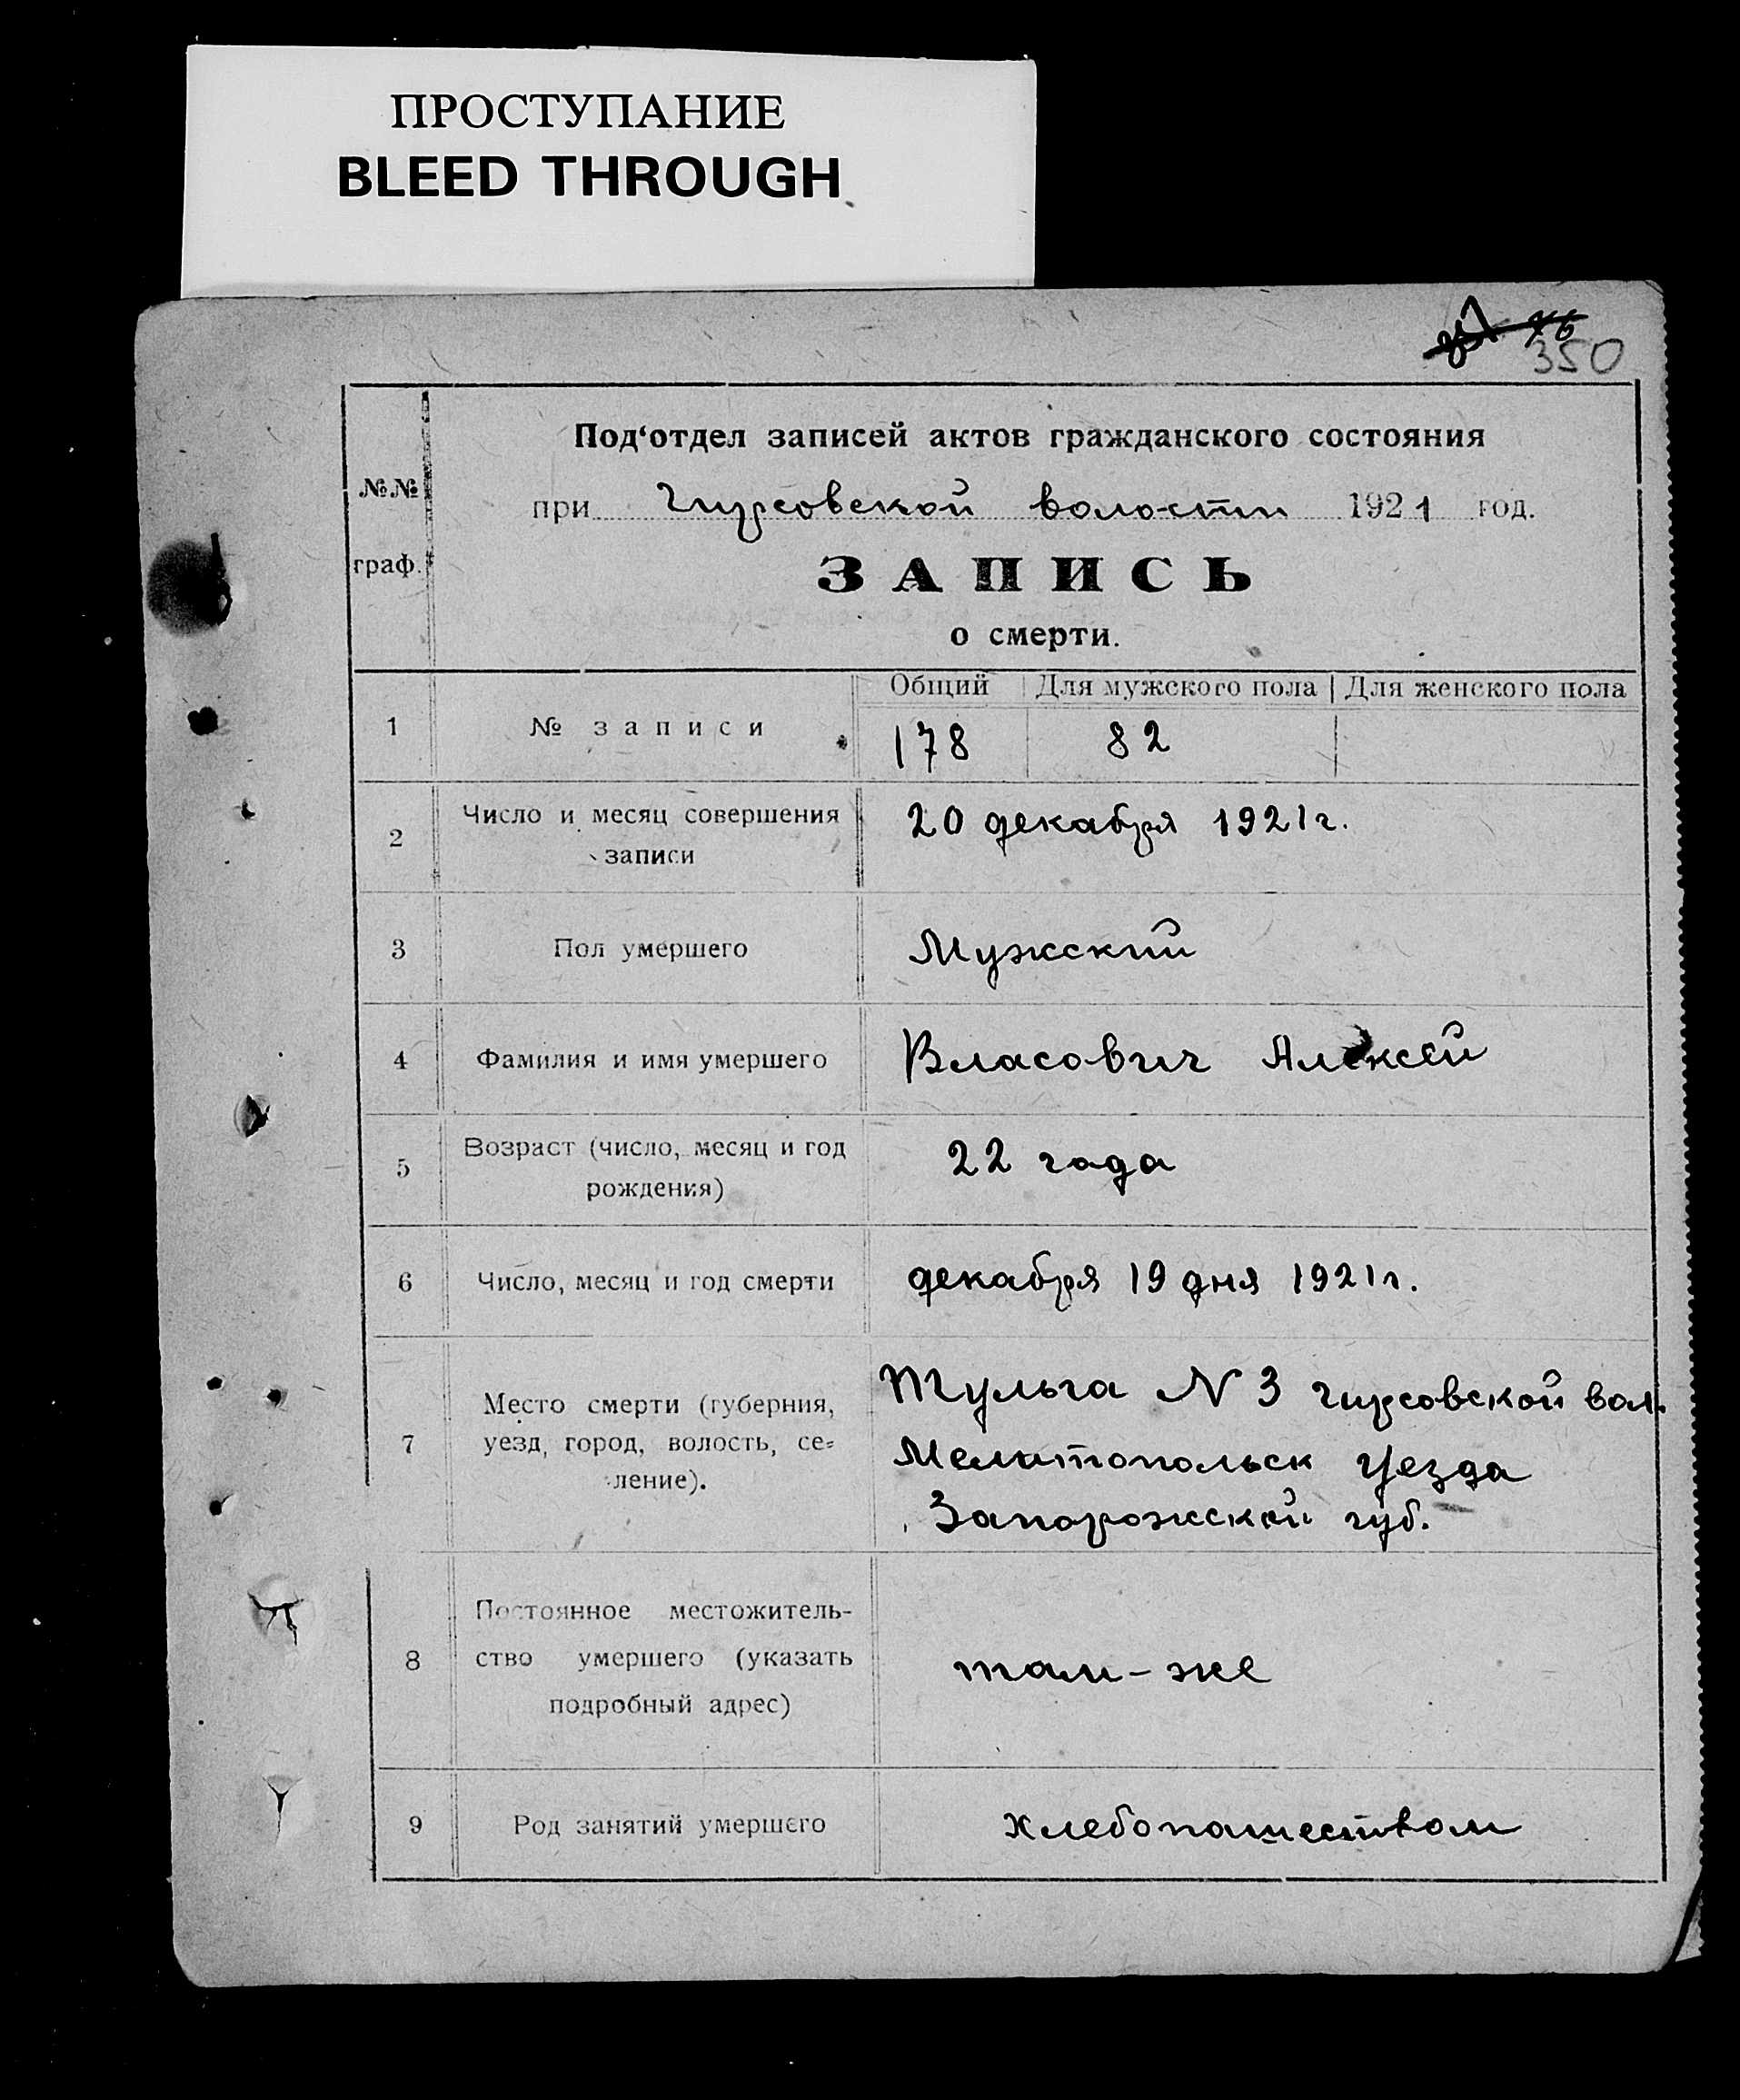 ПРОСТУПАНИЕ
BLEED THROUGH
350
№№ граф.
Под‘отдел записей актов гражданского состояния
при Гирсовской волости 1921 год.
ЗАПИСЬ
о смерти.
Общий Для мужского пола Для женского пола
1 № записи 178 82
2 Число и месяц совершения 20 декабря 1921 г.
записи
3 Пол умершего Мужский
4 Фамилия и имя умершего Власович Алексей
5 Возраст (число, месяц и год 22 года
рождения)
6 Число, месяц и год смерти декабря 19 дня 1921 г.
Место смерти (губерния, Тульга N 3 гирсовской вол.
7 уезд, город, волость, се= Мелитопольск уезда
ление). Запорожской губ.
Постоянное местожитель-
8 ство умершего (указать там-же
подробный адрес)
9 Род занятий умершего хлебопашеством